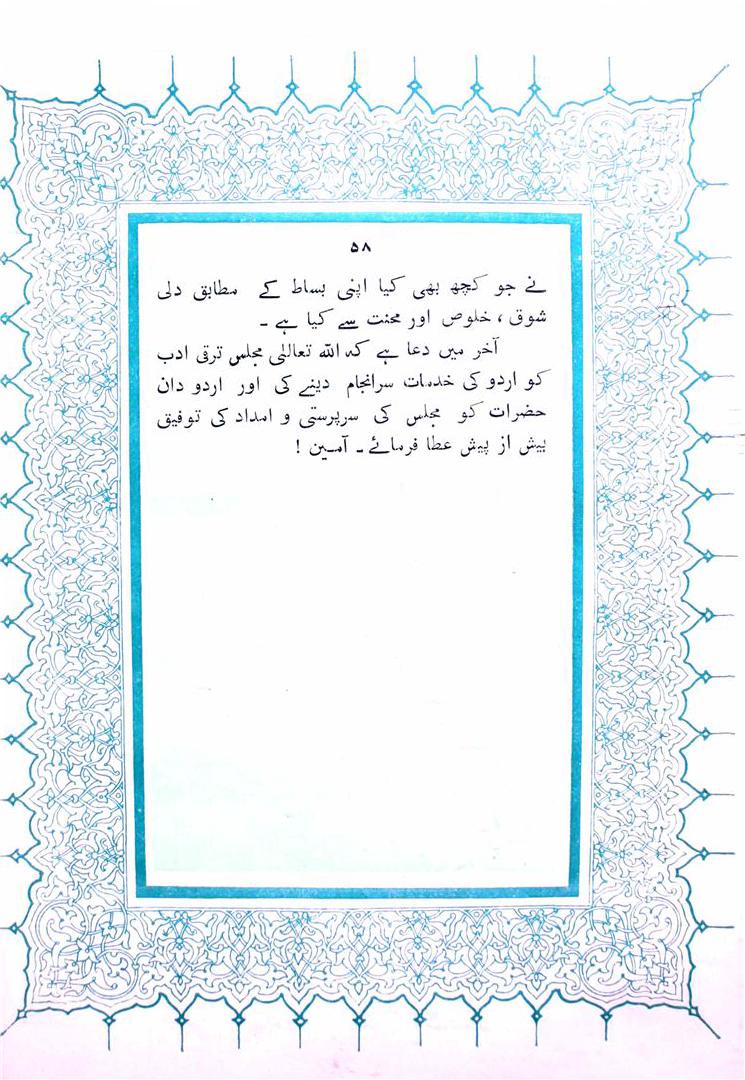 ۵۸
نے جو کچھ بھی کیا اپنی بساط کے مطابق دلی
شوق ، خلوص اور محنت سے کیا ہے ۔
آخر میں دعا ہے کہ اللہ تعالیٰ مجلس ترقی ادب
کو اردو کی خدمات سرانجام دینے کی اور اردو دان
حضرات کو مجلس کی سرپرستی و امداد کی توفیق
بیش از پیش عطا فرمائے ۔ آمین !